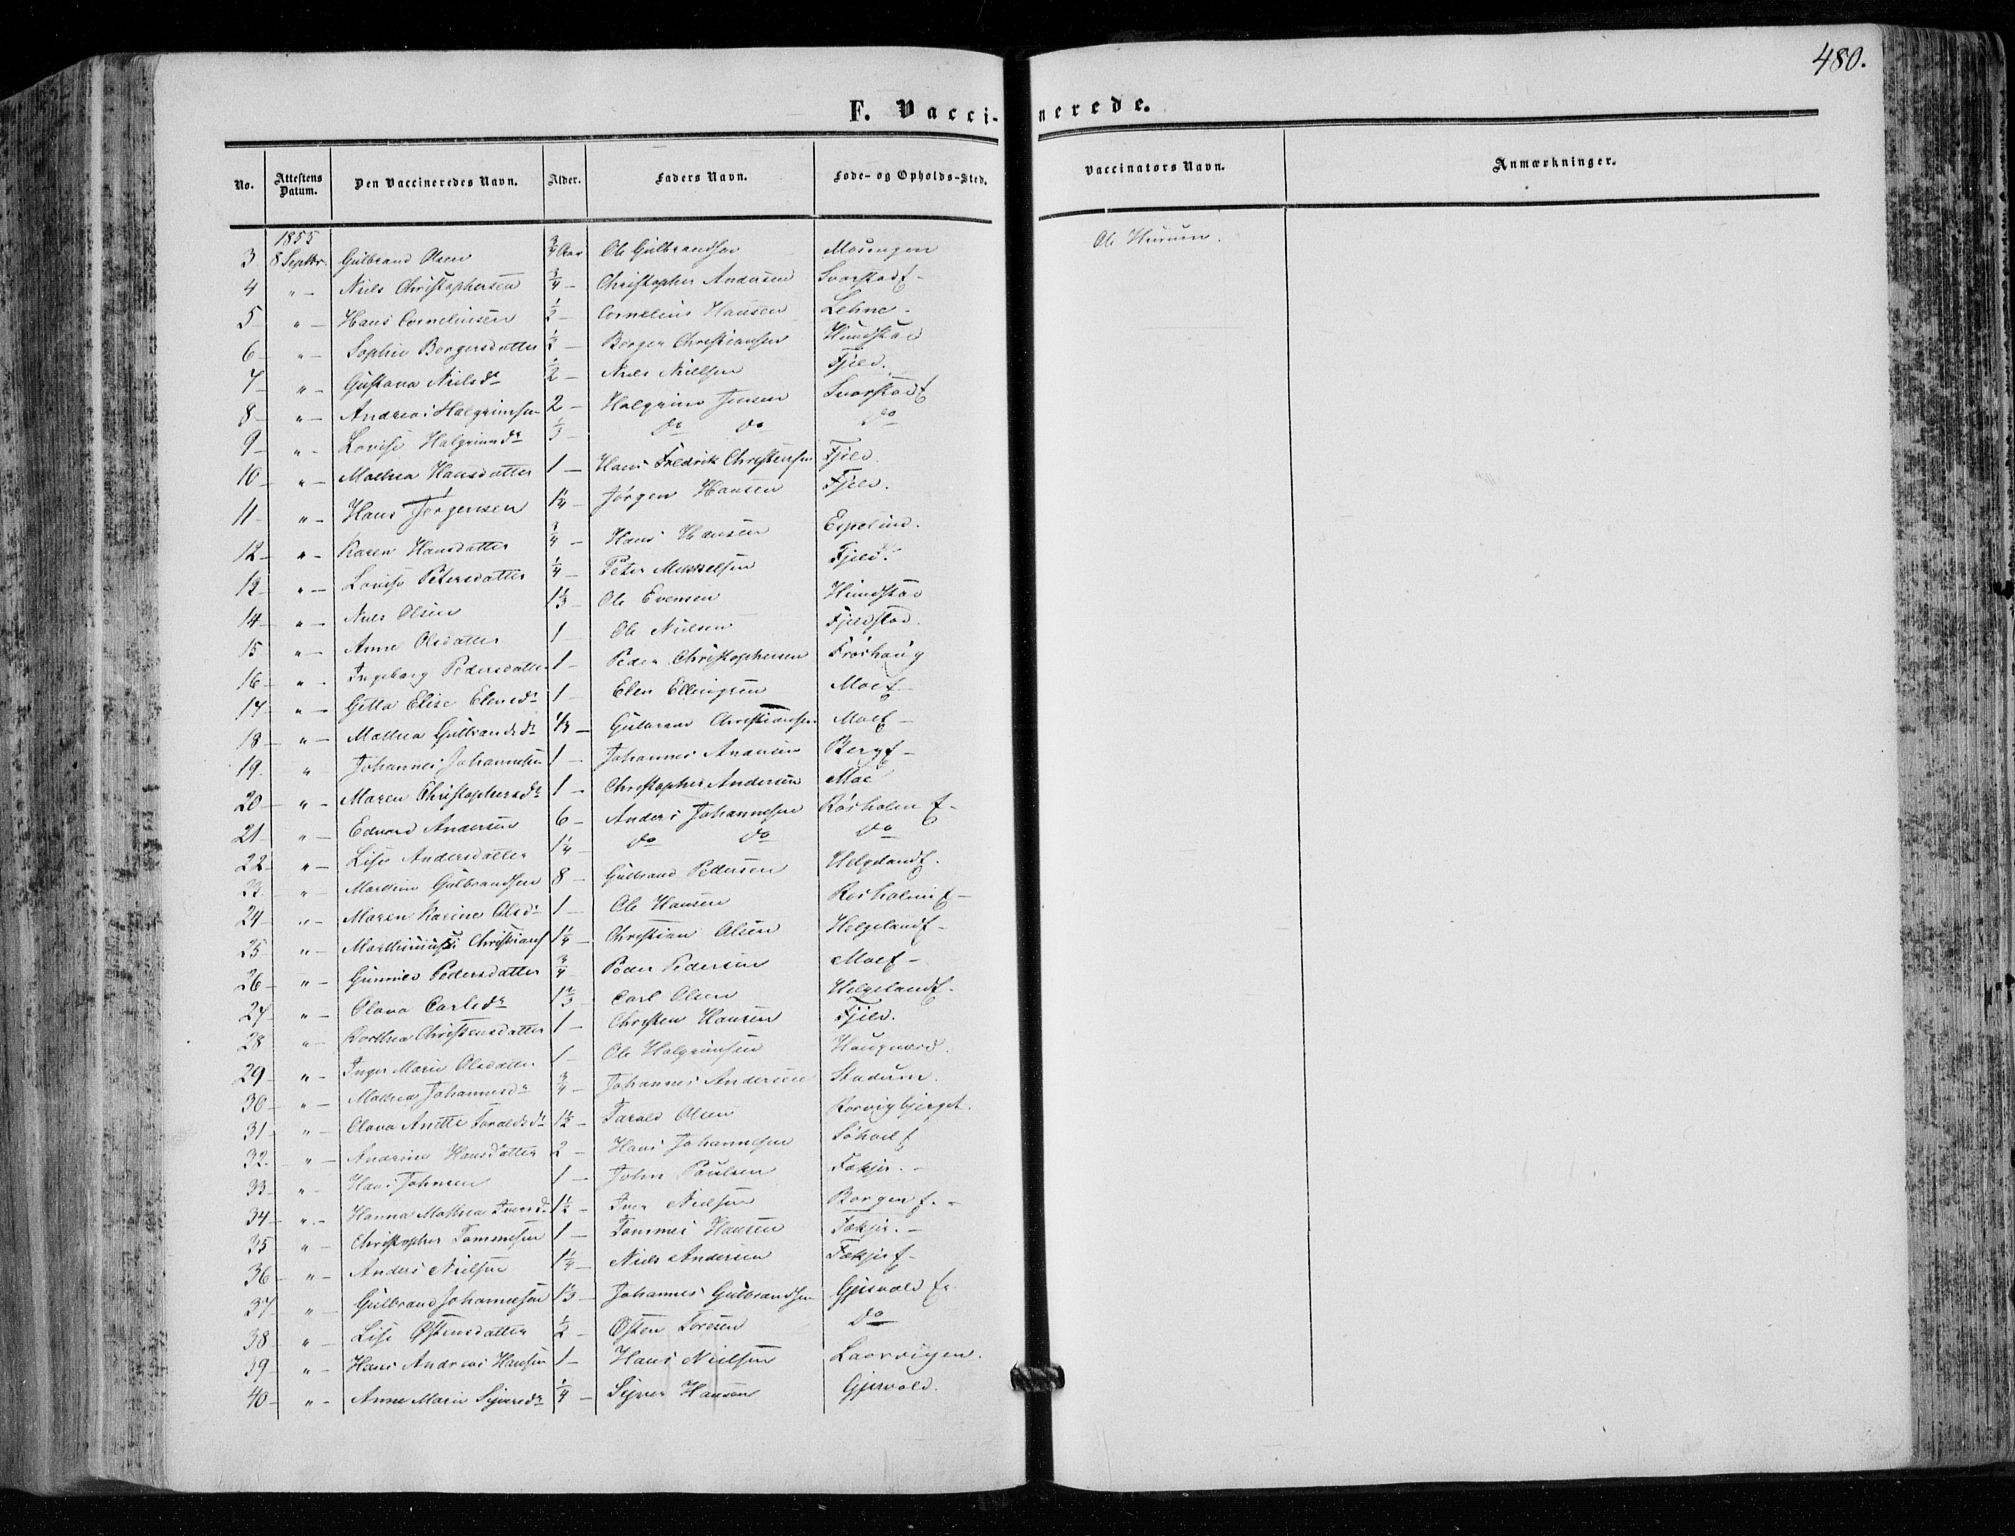 480.
F. Vaccinerede.
No. Attestens Datum. Den Vaccineredes Navn. Alder. Faders Navn. Føde- og Opholds-Sted. Vaccinators Navn. Anmærkninger.
1855
3 8 Septbr. Gulbrand Olsen 3/4 Aar Ole Gulbrandsen Mosengen Ole Hurum.
4 " - Niels Christophersen 3/4 - Christopher Andersen Svarstad
5 " - Hans Corneliusen 1/2 - Cornelius Hansen Lehne -
6 " - Sophie Borgersdatter 1/2 - Borger Christiansen Hundstad
7 " - Gustava Nielsdr 1/2 - Niels Nielsen Fjeld.
8 " - Andreas Halgrimsen 2 - Halgrim Jensen Svarstad
9 " - Lovise Halgrimsdr 1/3 - do do do
10 " - Mathea Hansdatter 1 - Hans Fredrik Christensen Fjeld.
11 " - Hans Jørgensen 1 1/4 - Jørgen Hansen Fjeld.
12 " - Karen Hansdatter 3/4 - Hans Hansen Espelind.
13 " - Lovise Petersdatter 1/4 - Peter Mikkelsen Fjeld.
14 " - Niels Olsen 1 1/3 Ole Evensen Hundstad
15 " - Anne Olsdatter 1 - Ole Nielsen Fjeldstad.
16 " - Ingeborg Pedersdatter 1 - Peder Christophersen Frøshaug
17 " - Getta Elise Elensdr 1 - Elen Ellingsen Moe
18 " - Mathea Gulbrandsdr 1/3 - Gulbrand Christiansen Moe -
19 " Johannes Johannesen 1 - Johannes Andersen Berg -
20 " - Maren Christophersdr 1 - Christopher Andersen Moe
21 " - Edvard Andersen 6 - Anders Johannesen Rosholm
22 " - Lise Andersdatter 1 1/4 - do do do
23 " Martin Gulbrandsen 8 - Gulbrand Pedersen Helgeland
24 " - Maren Karine Olsdr 1 - Ole Hansen Rosholm
25 " - Christians 1 1/4 - Christian Olsen Helgeland -
26 " - Gunnild Pedersdatter 3/4 - Peder Pedersen Moe -
27 " - Olava Carlsdr 1 2/3 - Carl Olsen Helgeland
28 " - Dorthea Christensdatter 1 - Christen Hansen Fjeld.
29 " - Inger Marie Olsdatter 1 - Ole Halgrimsen
30 " - Mathea Johannesdr 3/4 - Johannes Andersen Stadum.
31 " Olava Anette Taraldsdr 1 1/2 - Tarald Olsen
32 " - Andrine Hansdatter 2 - Hans Johannesen Søhoel
33 " - Hans Johnsen 1 - John Paulsen -
34 " - Hanna Mathea Iversdr 1 1/2 - Iver Nielsen Borgen -
35 " - Christopher Tommesen 1 - Tommes Hansen -
36 " - Anders Nielsen 1 1/4 - Niels Andersen
37 " Gulbrand Johannesen 1 1/3 - Johannes Gulbrandsen Gjesvold
38 " Lise Østensdatter 1/2 - Østen Toresen do
39 " - Hans Andreas Hansen 1 - Hans Nielsen
40 " - Anne Marie Syversdr 1/4 - Syver Hansen Gjesvold.